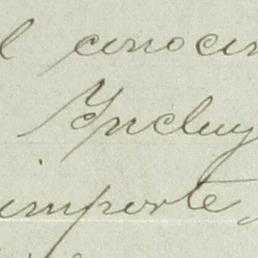 l conocim
Yncluy
importe